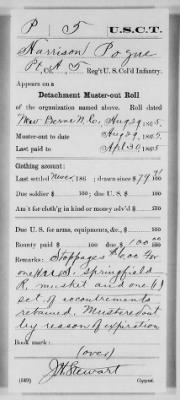 P. 5 U.S.C.T.
Harrison Pogue
Pt, A 5 Reg't U. S. Col'd Infantry.
Appears on a
Detachment Muster-out Roll
of the organization named above. Roll dated
New Berne N.C., Aug 29, 1865.
Muster-out to date Aug 29, 1865.
Last paid to Apl 30, 1865
Clothing account:
Last settled Never, 186 ; drawn since $ 79
Due soldier $ 100; due U. S. $ 100
Am't for cloth'g in kind or money adv'd $ 100
Due U. S. for arms, equipments, &c., $ 100
Bounty paid $ 100; due $ 100 00/100
Remarks: Stoppages $6.00 for
one springfield
R. musket and one (1)
set of accoutrements
retained. Musteredout
by reason of expiration
Book mark:
(over)
J H Stewart
(369) Copyist.